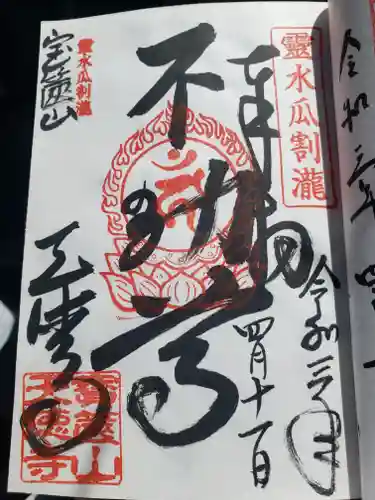 靈水瓜割瀧
奉拝
令和三年
四月十一日
不動尊
靈水瓜割瀧
宝篋山
天徳寺
寶篋山
天德寺
令和三年
四